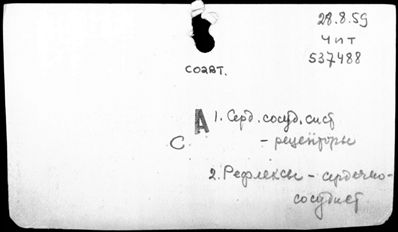 28.8.59
Чит
537488
соавт.
А 1. Серд. сосуд. сист
С - рецепторы
2. Рефлексы - сердечно-
сосудист